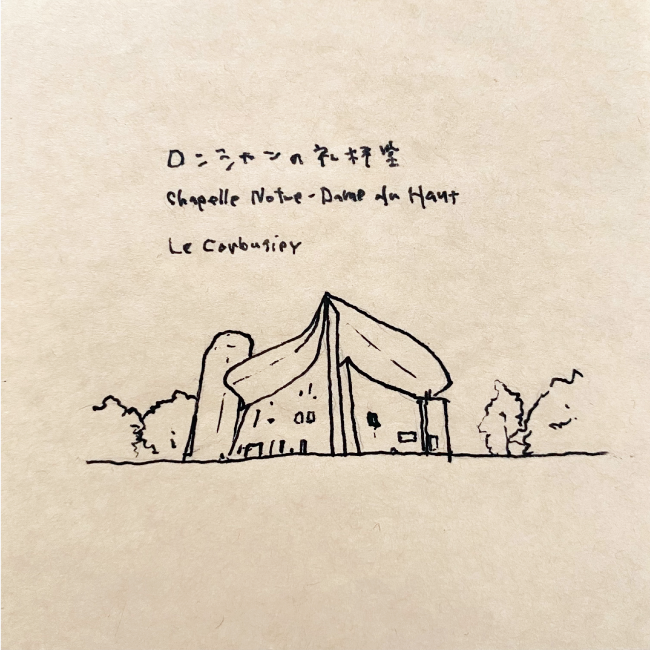 ロンシャンの礼拝堂
Chapelle Notre-Dame du Haut
Le Corbusier